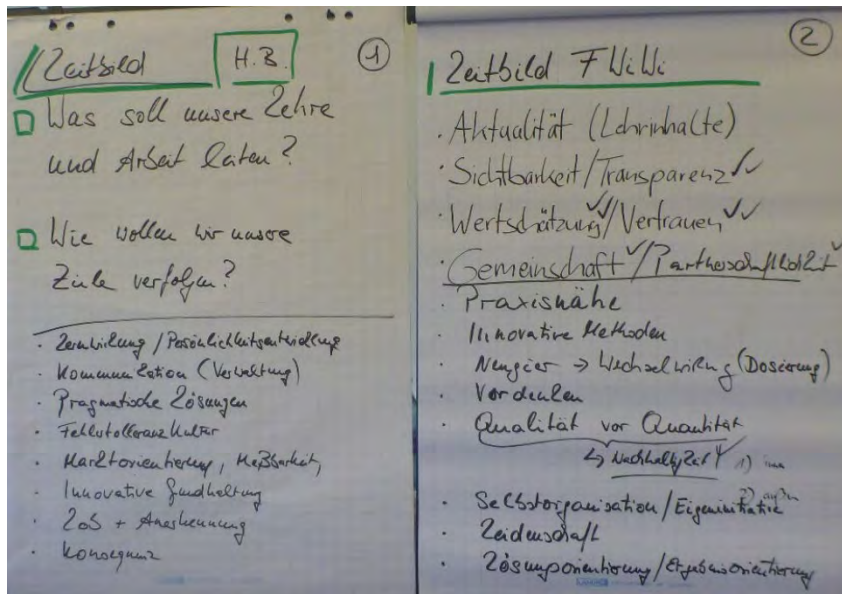 Leitbild H.B. 1
Was soll unsere Lehre
und Arbeit leiten?
Wie wollen wir unsere
Ziele verfolgen?
· Lernwirkung / Persönlichkeitsentwicklung
· Kommunikation (Verwaltung)
· Pragmatische Lösungen
· Fehlertolleranz Kultur
· Marktorientierung, Meßbarkeit,
· Innovative Grundhaltung
· Lob + Anerkennung
· Konsequenz
2
Leitbild FWiWi
· Aktualität (Lehrinhalte)
· Sichtbarkeit/Transparenz ✓✓
· Wertschätzung ✓✓/Vertrauen ✓✓
· Gemeinschaft ✓/Partnerschaftlichkeit ✓
· Praxisnähe
· Innovative Methoden
· Neugier → Wechselwirkung (Dosierung)
· Vordenken
· Qualität vor Quantität
↳ Nachhaltigkeit 1) innen
2) außen
· Selbstorganisation/Eigeninitiative
· Leidenschaft
· Lösungsorientierung/Ergebnisorientierung